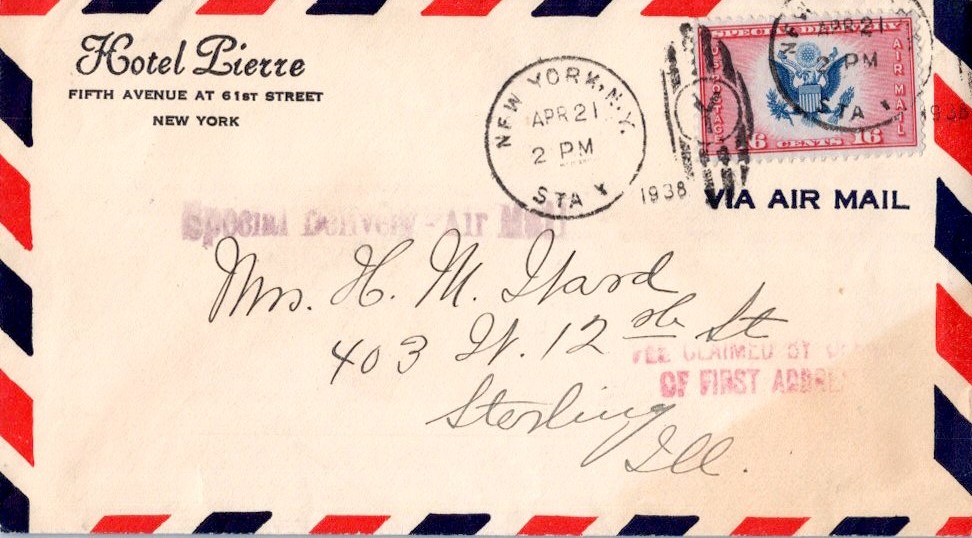 Hotel Pierre
FIFTH AVENUE AT 61ST STREET
NEW YORK
NEW YORK, N.Y.
APR 21
2 PM
STA Y
1938
NEW
APR 21
2 PM
STA Y
1938
SPECIAL DELIVERY
U.S. POSTAGE
AIR MAIL
16 CENTS 16
VIA AIR MAIL
Special Delivery - Air Mail
Mrs. H. M. Ward
403 W. 12th St
FEE CLAIMED BY
OF FIRST
Sterling
Ill.